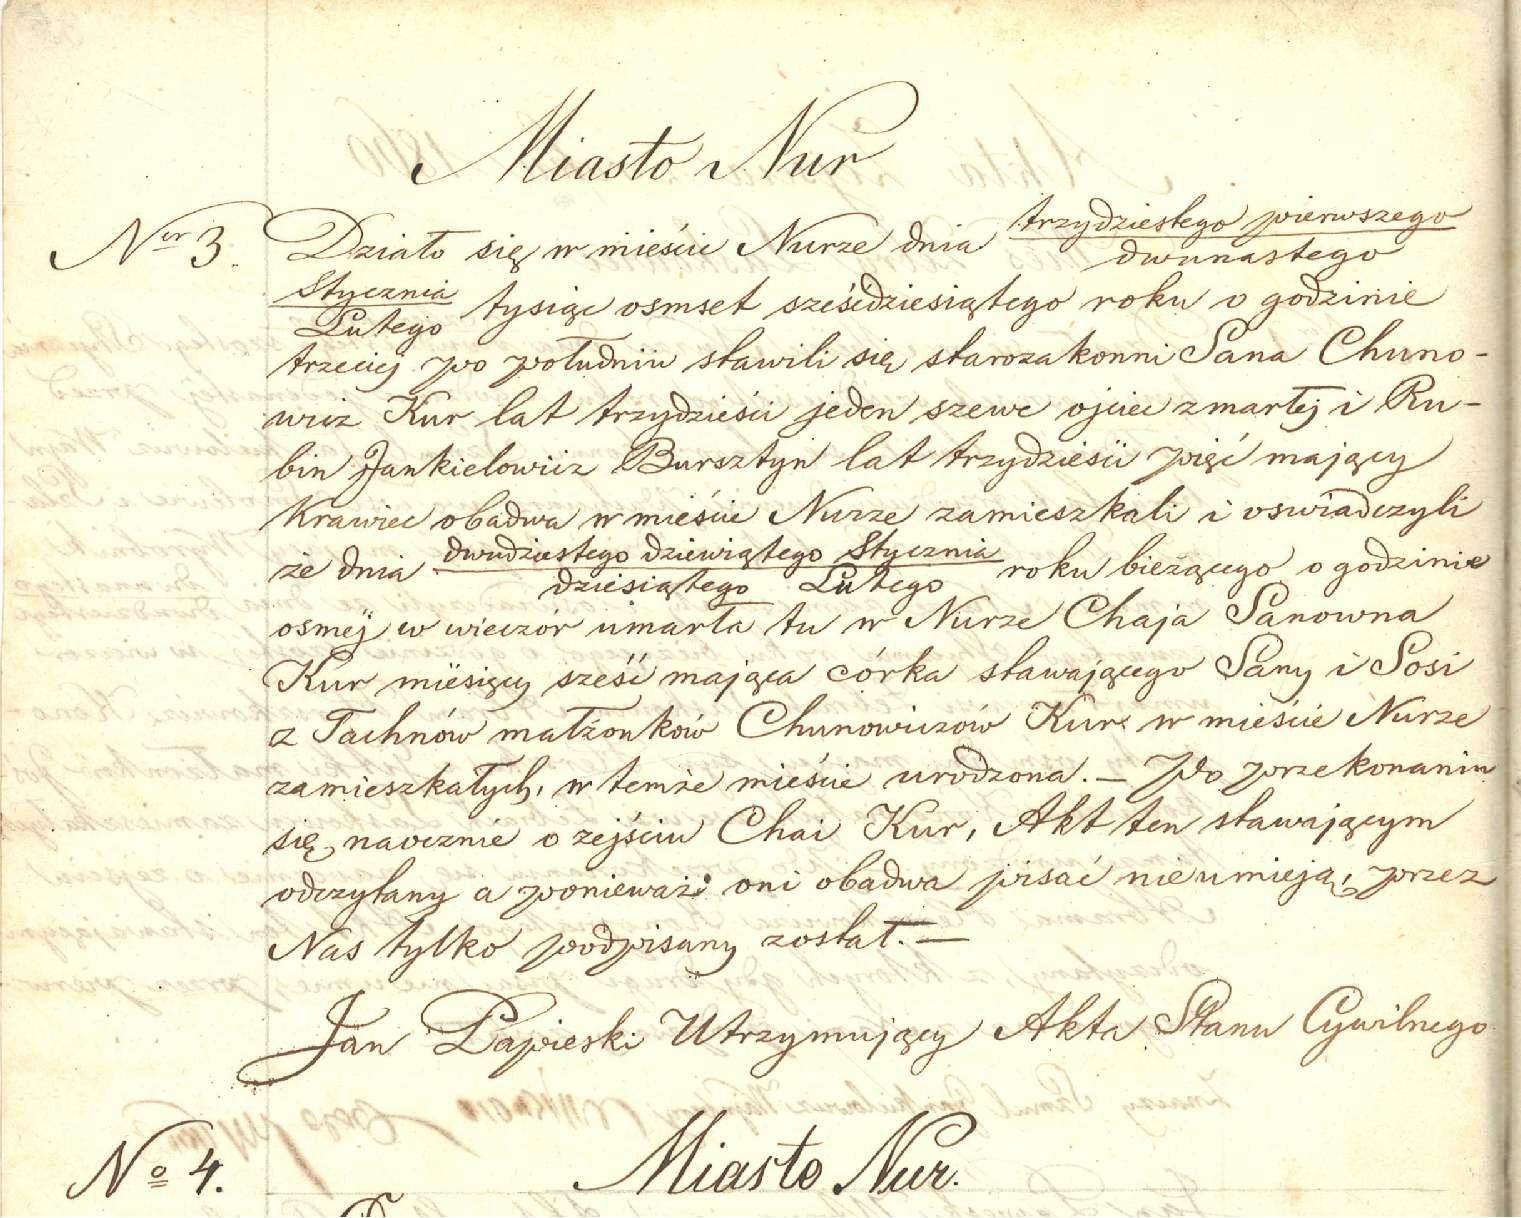 Miasto Nur
Nur 3. Działo się w mieście Nurze dnia trzydziestego pierwszego
dwunastego
Stycznia
Lutego
tysiąc osmset sześćdziesiątego roku o godzinie
trzeciej po południu stawili się starozakonni Sana Chuno-
wicz Kur lat trzydzieści jeden szewc ojciec zmarłej i Ru-
bin Jankielowicz Bursztyn lat trzydzieści pięć mający
Krawiec obadwa w mieście Nurze zamieszkali i oswiadczyli
że dnia dwudziestego dziewiątego Stycznia
dziesiątego Lutego
roku bieżącego o godzinie
osmej w wieczór umarła tu w Nurze Chaja Sanowna
Kur miesięcy sześć mająca córka stawającego Sany i Sosi
z Tachnów małżonków Chunowiczów Kur w mieście Nurze
zamieszkałych, w temże mieście urodzona. — Po przekonaniu
się naocznie o zejściu Chai Kur, Akt ten stawającym
odczytany a ponieważ oni obadwa pisać nieumieją, przez
Nas tylko podpisany został. —
Jan Łapieski Utrzymujący Akta Stanu Cywilnego
No 4. Miasto Nur.